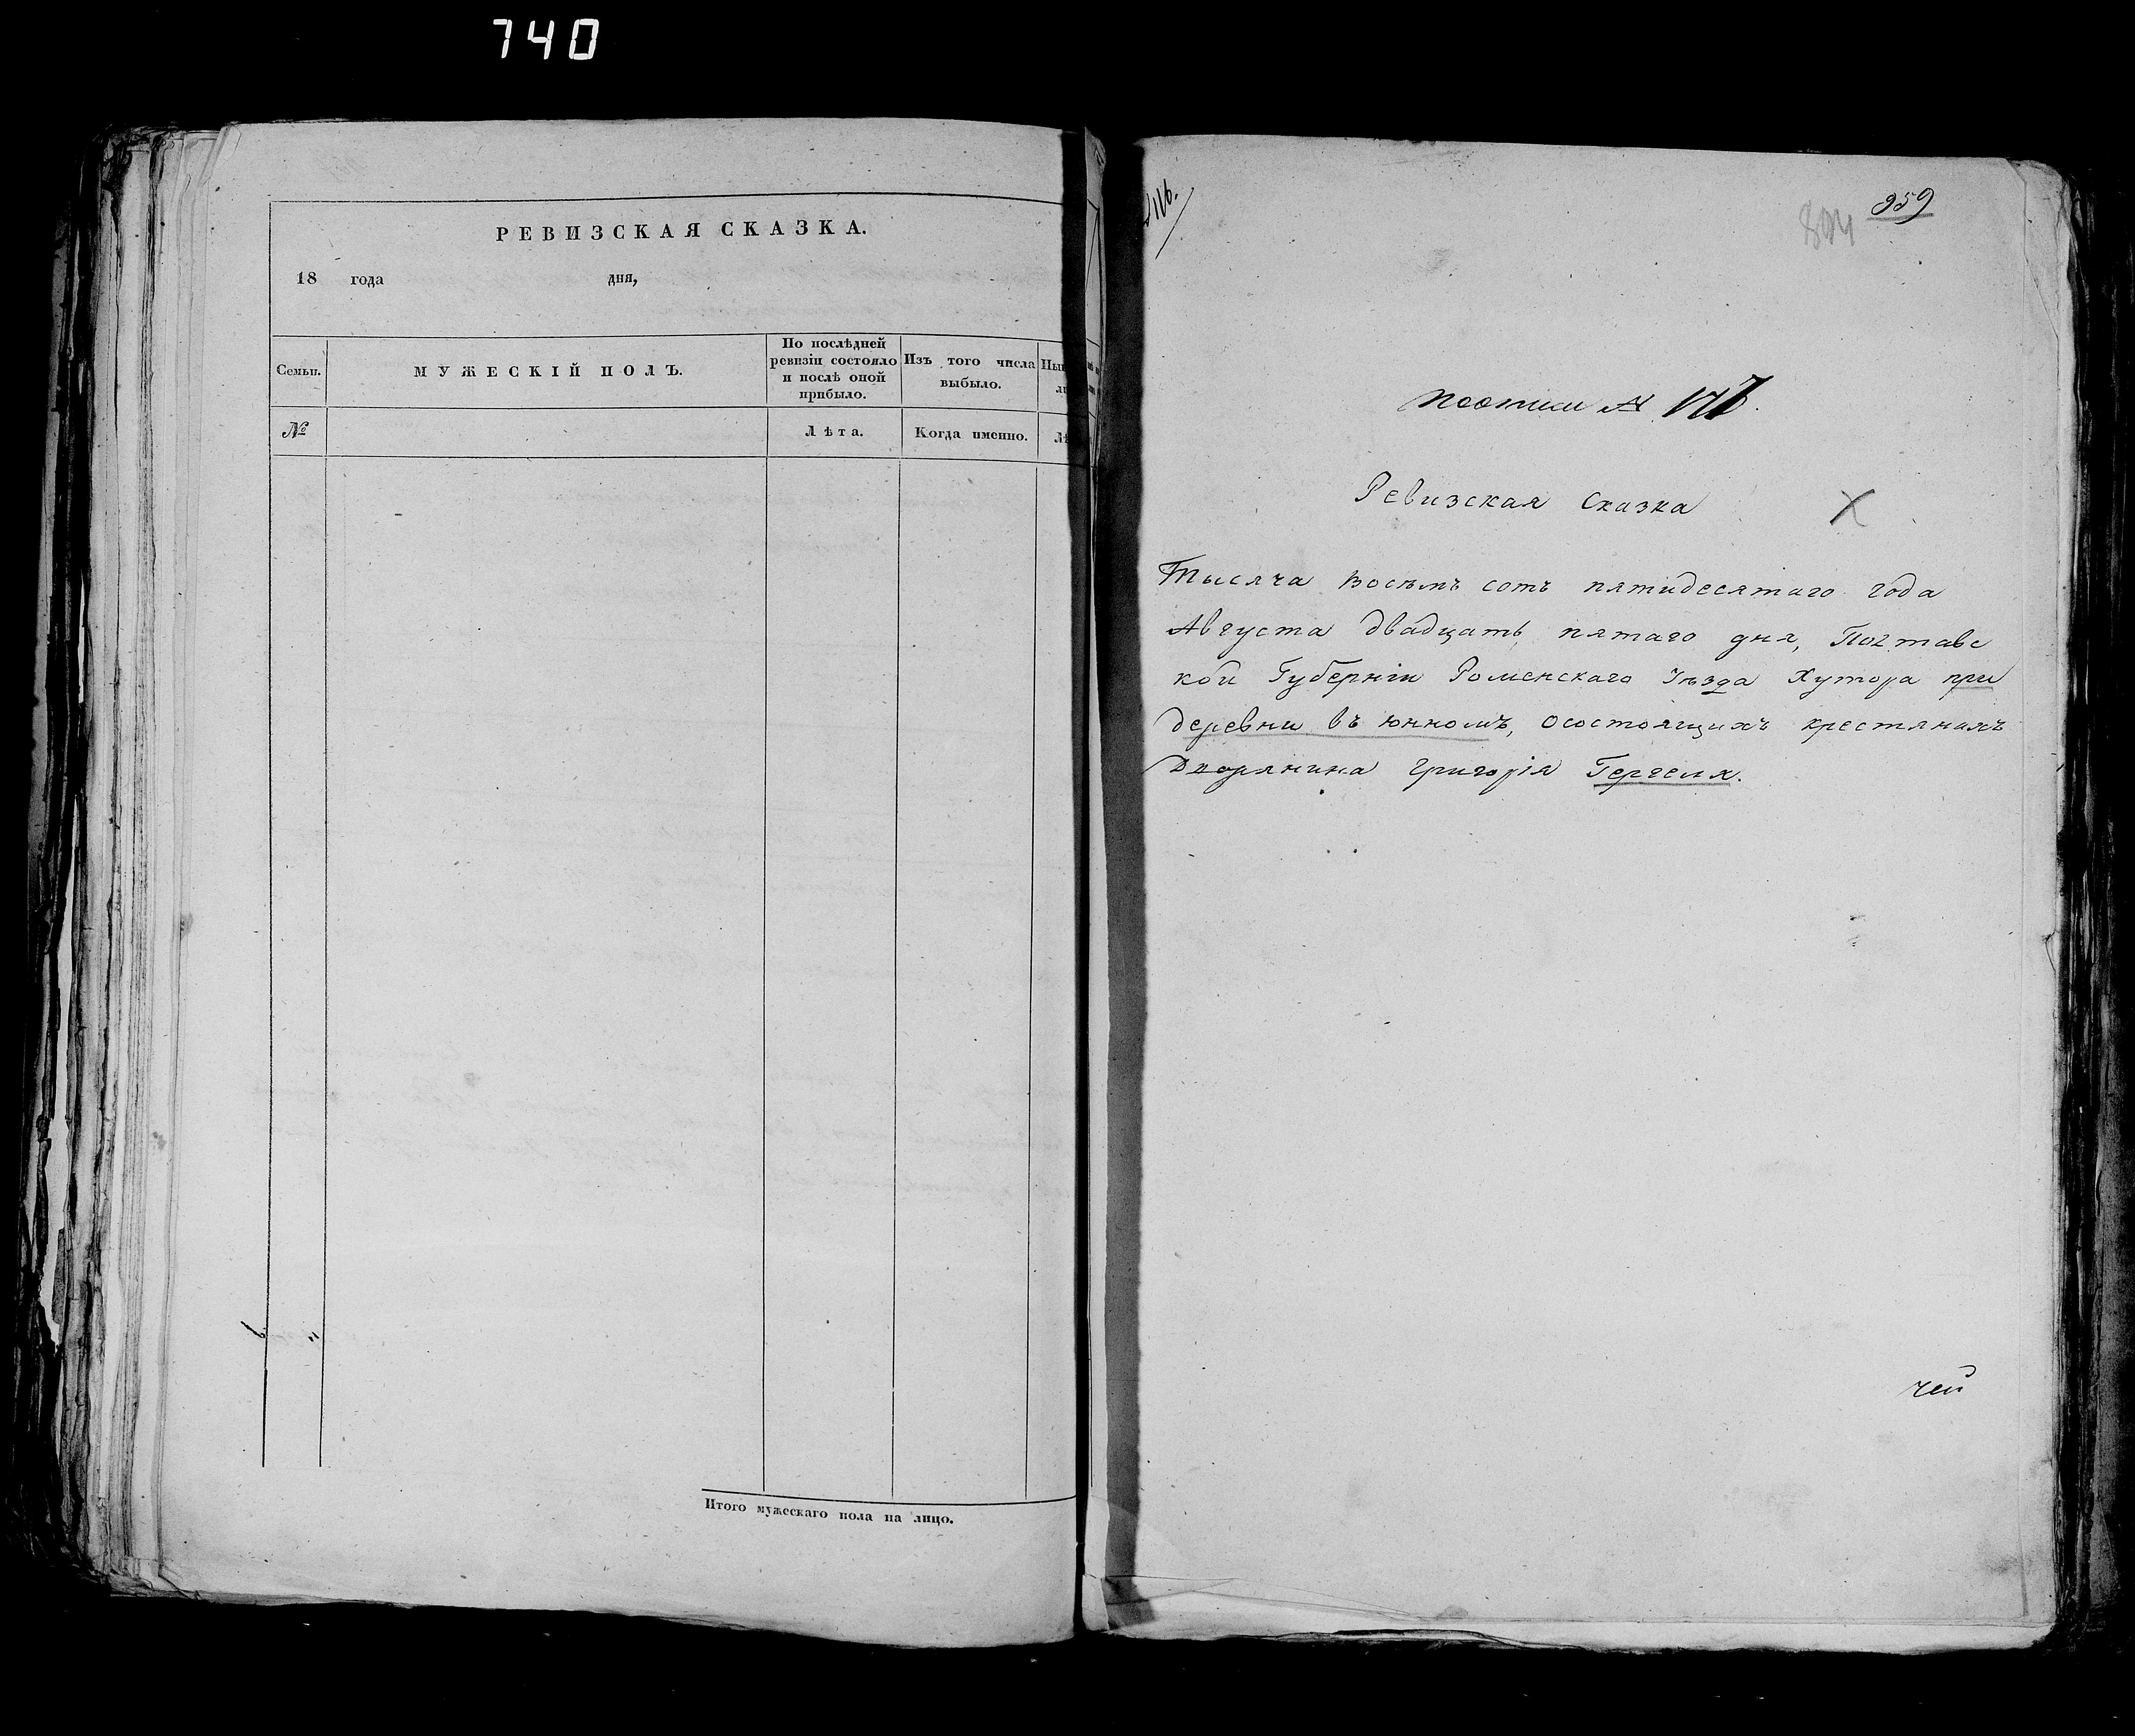 740
РЕВИЗСКАЯ СКАЗКА.
18 года дня,
Семьи.
МУЖЕСКІЙ ПОЛЪ.
По послѣдней
ревизіи состояло
и послѣ оной
прибыло.
Изъ того числа
выбыло.
№
Лѣта.
Когда именно.
Итого мужескаго пола на лицо.
959
поописи №
Ревизская Сказка
Тысяча восѣмъ сотъ пятидесятаго года
Августа двадцать пятаго дня, Полтавс
кой Губерніи Роменскаго Уѣзда Хутора при
деревни въ юнномъ, осостоящихъ крестянахъ
Дворянина Григорія Гергеля.
чей